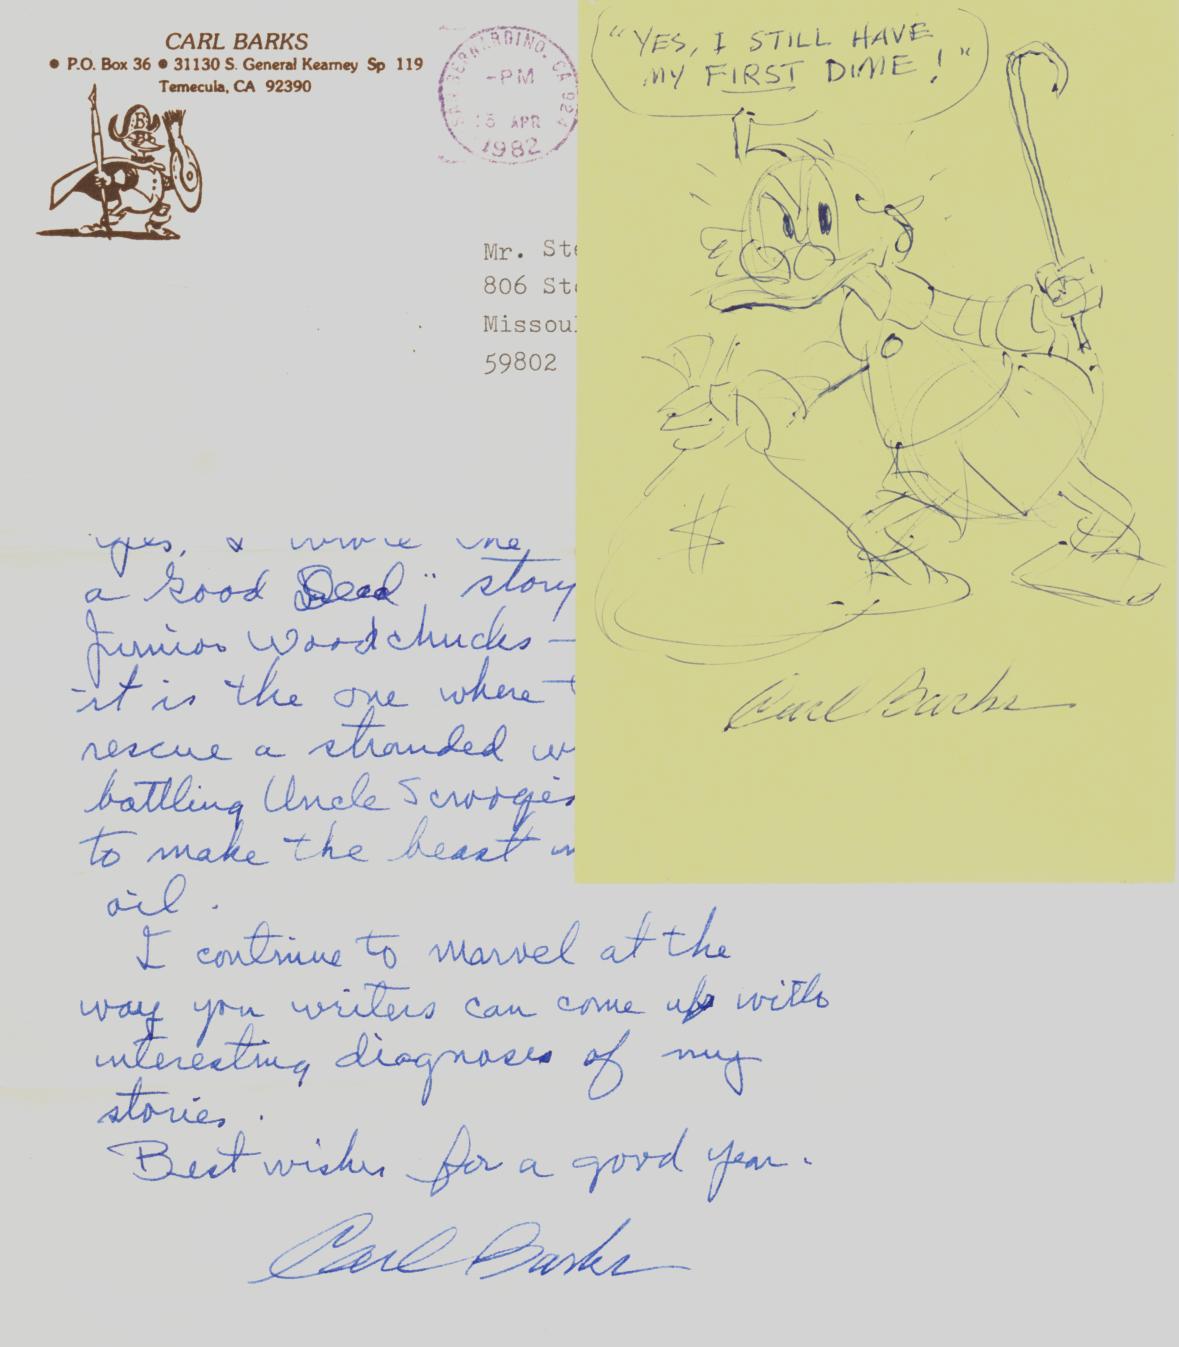 CARL BARKS
• P.O. Box 36 • 31130 S. General Kearney Sp 119
Temecula, CA 92390
B
SAN BERNARDINO, CA 924
-PM
15 APR
1982
Mr. Ste
806 St
Missoul
59802
"YES, I STILL HAVE
MY FIRST DIME!"
$
Carl Barks
me
a Good Deed" story
Junior Woodchucks —
it is the one where
rescue a stranded w
battling Uncle Scrooge's
to make the beast in
oil.
I continue to marvel at the
way you writers can come up with
interesting diagnoses of my
stories.
Best wishes for a good year.
Carl Barks